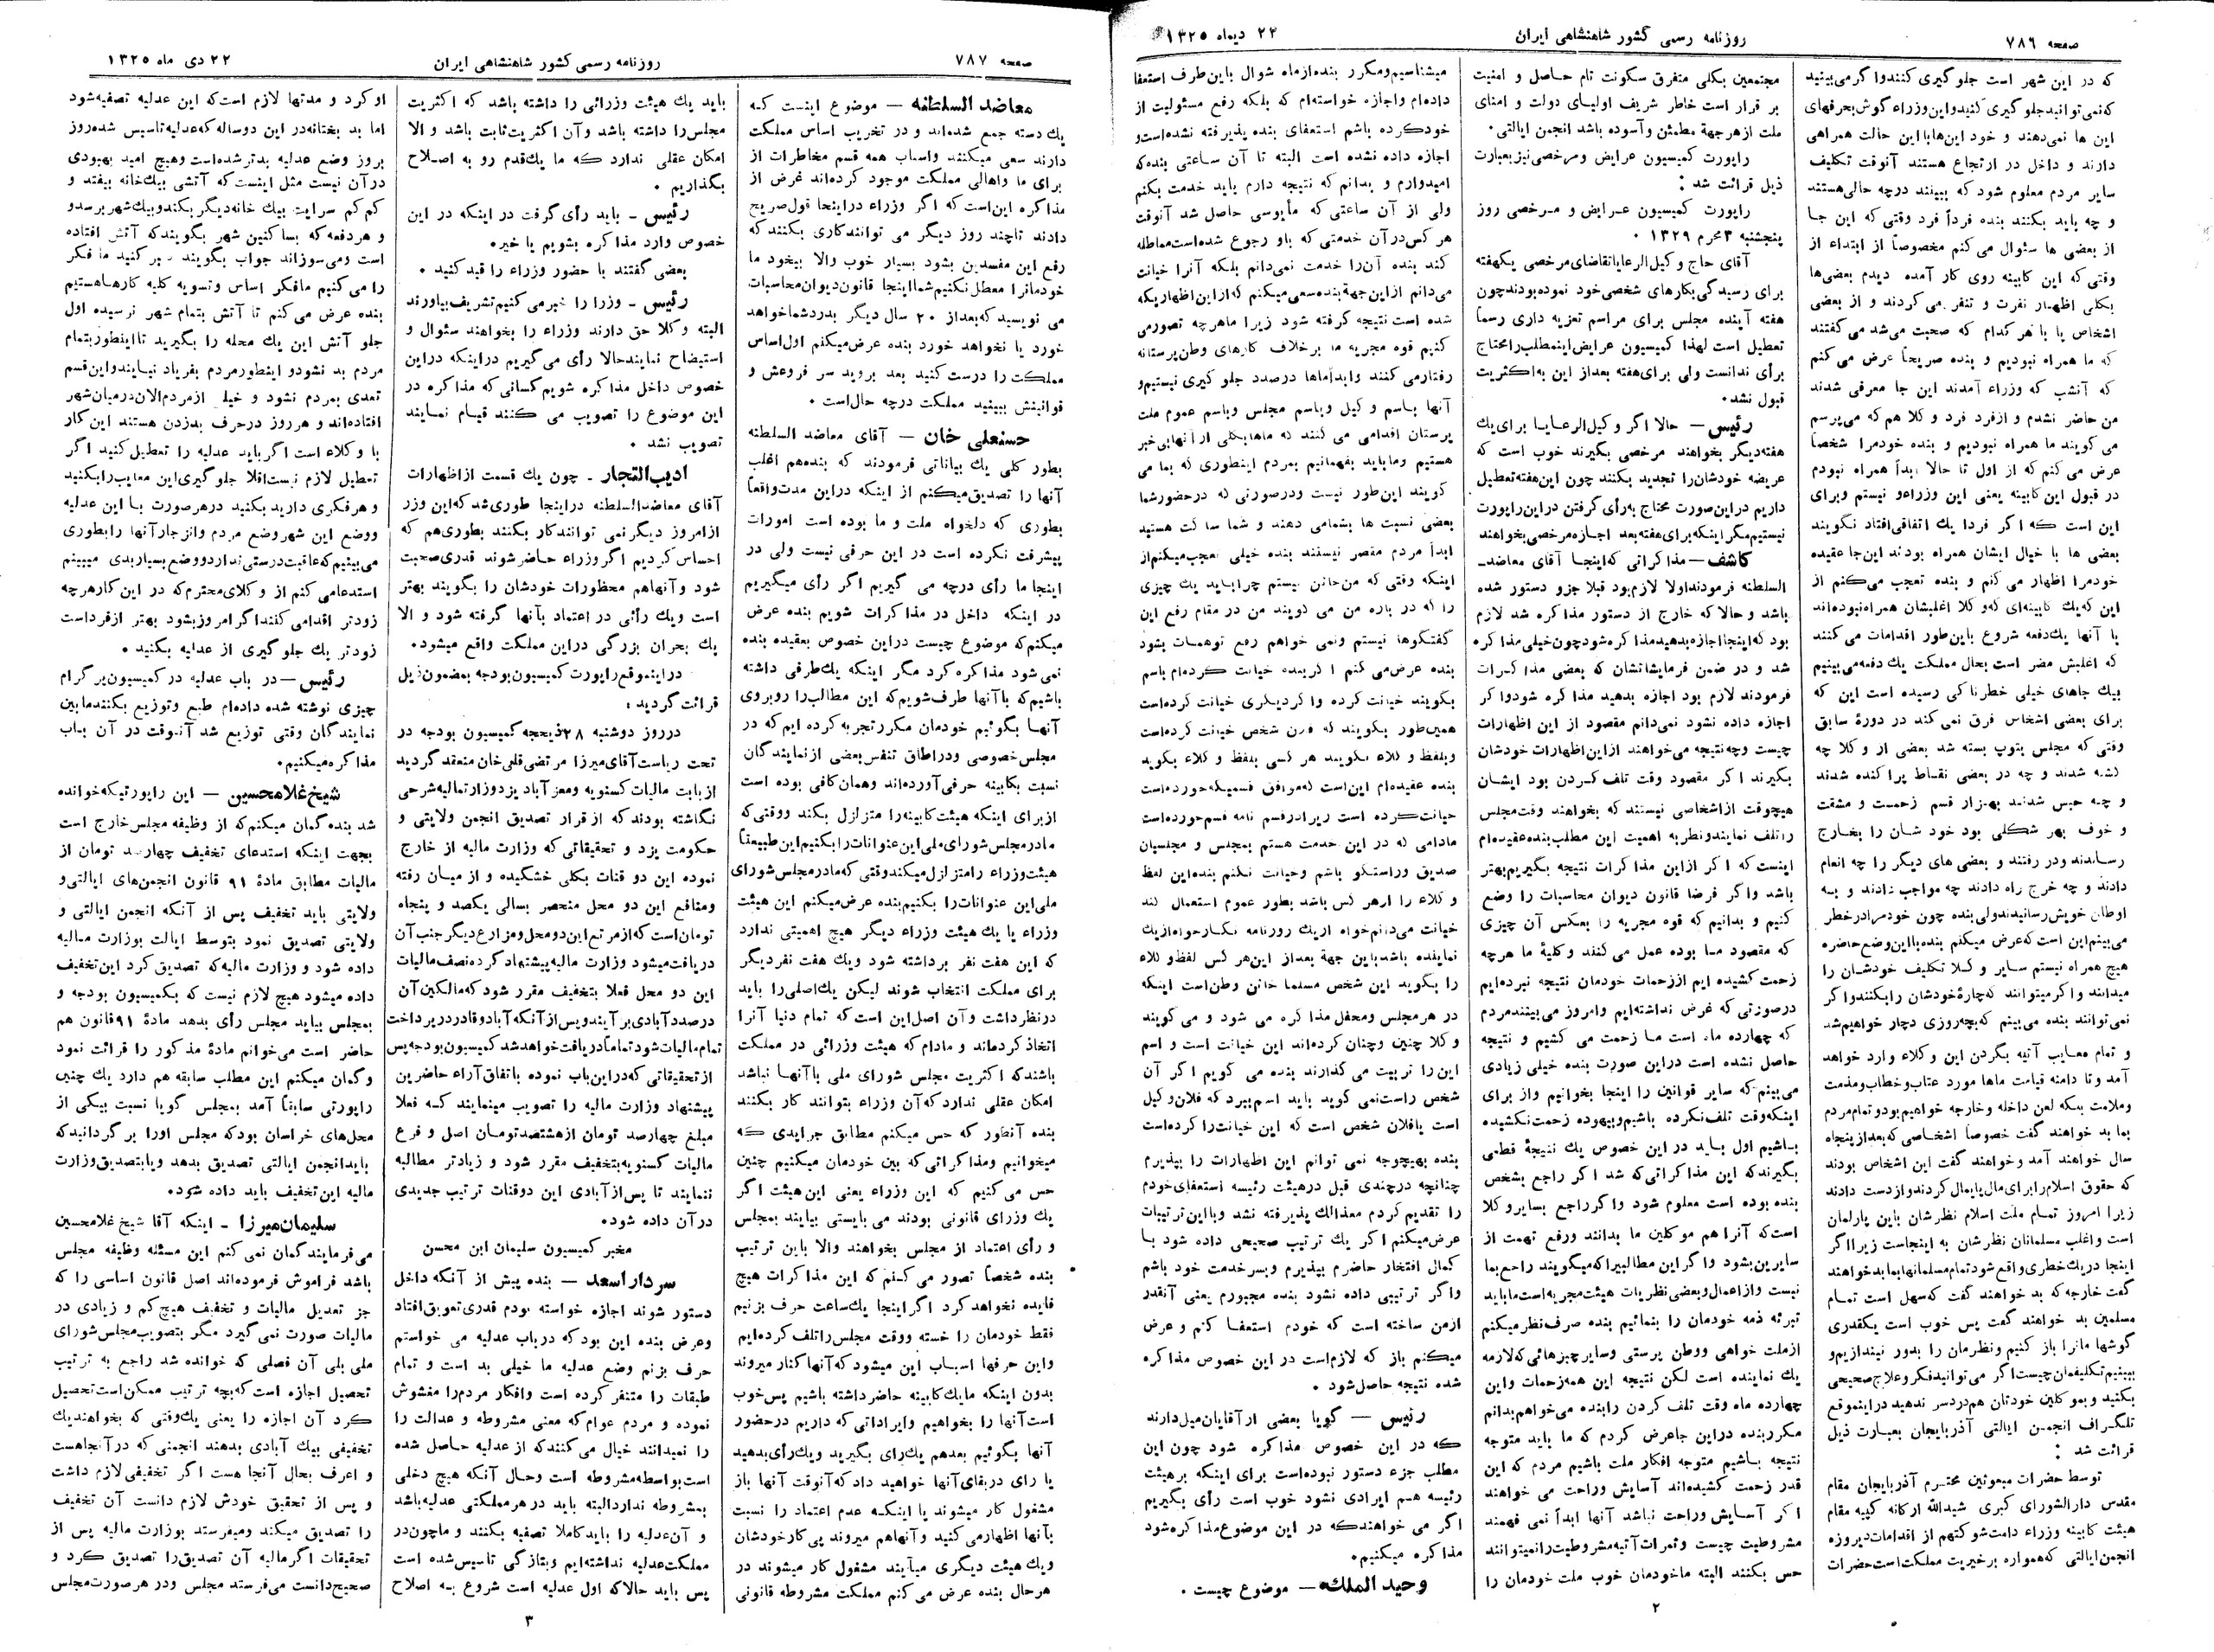 صفحه ۷۸۶
روزنامه رسمی کشور شاهنشاهی ایران
۲۲ دیماه ۱۳۲۵
که در این شهر است جلوگیری کنند واگر می‌بینید
که نمی‌توانید جلوگیری کنید واین وزراء گوش بحرفهای
این ها نمی‌دهند و خود این‌ها با این حالت همراهی
دارند و داخل در ارتجاع هستند آنوقت تکلیف
سایر مردم معلوم شود که ببینند درچه حالی هستند
و چه باید بکنند بنده فرداً فرد وقتی که این جا
از بعضی ها سئوال می‌کنم مخصوصاً از ابتداء از
وقتی که این کابینه روی کار آمده دیدم بعضی‌ها
بکلی اظهار نفرت و تنفر می‌کردند و از بعضی
اشخاص یا با هر کدام که صحبت می‌شد می‌گفتند
که ما همراه نبودیم و بنده صریحاً عرض می‌کنم
که آنشب که وزراء آمدند این جا معرفی شدند
من حاضر نشدم و ازفرد فرد و کلا هم که می‌پرسم
می گویند ما همراه نبودیم و بنده خودمرا شخصاً
عرض می‌کنم که از اول تا حالا ابداً همراه نبودم
در قبول این کابینه یعنی این وزراءو نیستم وبرای
این است که اگر فردا یك اتفاقی افتاد نگویند
بعضی ها با خیال ایشان همراه بودند این‌جا عقیده
خودمرا اظهار می کنم و بنده تعجب می‌کنم از
این که یك کابینه‌ای که وکلا اغلبشان همراه نبوده‌اند
با آنها یك‌دفعه شروع باین‌طور اقدامات می‌کنند
که اغلبش مضر است بحال مملکت یك دفعه می‌بینیم
بیك جاهای خیلی خطرناکی رسیده است این که
برای بعضی اشخاص فرق نمی کند در دورهٔ سابق
وقتی که مجلس بتوپ بسته شد بعضی از وکلا چه
کشته شدند و چه در بعضی نقاط پراکنده شدند
و چه حبس شدند بهزار قسم زحمت و مشقت
و خوف بهر شکلی بود خود شان را بخارج
رساندند ودر رفتند و بعضی های دیگر را چه انعام
دادند و چه خرج راه دادند چه مواجب دادند و به
اوطان خویش رسانیدند ولی بنده چون خودمرا درخطر
می‌بینم این است که عرض میکنم بنده با این وضع حاضره
هیچ همراه نیستم سایر وکلا تکلیف خودشان را
میدانند واگر میتوانند که چارهٔ خودشان را بکنند واگر
نمی‌توانند بنده می‌بینم که بچه روزی دچار خواهیم شد
و تمام معایب آتیه بگردن این وکلاء وارد خواهد
آمد و تا دامنه قیامت ماها مورد عتاب و خطاب و مذمت
وملامت بلکه لعن داخله وخارجه خواهیم بود و تمام مردم
بما بد خواهند گفت خصوصاً اشخاصی که بعد از پنجاه
سال خواهند آمد و خواهند گفت این اشخاص بودند
که حقوق اسلام را برای مال پایمال کردند و از دست دادند
زیرا امروز تمام ملت اسلام نظرشان باین پارلمان
است واغلب مسلمانان نظرشان به اینجاست زیرا اگر
اینجا در یك خطری واقع شود تمام مسلمانها بما بد خواهند
گفت خارجه که بد خواهند گفت که سهل است تمام
مسلمین بد خواهند گفت پس خوب است یکقدری
گوشها مانرا باز کنیم ونظرمان را بدور نیندازیم و
ببینیم تکلیفمان چیست اگر می‌توانید فکر و علاج صحیحی
بکنید و بموکلین خودتان هم دردسر ندهید دراینموقع
تلگراف انجمن ایالتی آذربایجان بعبارت ذیل
قرائت شد :
توسط حضرات مبعوثین محترم آذربایجان مقام
مقدس دارالشورای کبری شیدالله ارکانه کپیه مقام
هیئت کابینه وزراء دامت شوکتهم از اقدامات دیروزه
انجمن ایالتی که همواره بر خیریت مملکت است حضرات
مجتمعین بکلی متفرق سکونت تام حاصل و امنیت
بر قرار است خاطر شریف اولیای دولت و امنای
ملت از هر جهة مطمئن وآسوده باشد انجمن ایالتی.
راپورت کمیسیون عرایض ومرخصی نیز بعبارت
ذیل قرائت شد :
راپورت کمیسیون عرایض و مرخصی روز
پنجشنبه ۳ محرم ۱۳۲۹ .
آقای حاج وکیل الرعایا تقاضای مرخصی یکهفته
برای رسیدگی بکارهای شخصی خود نموده بودند چون
هفته آینده مجلس برای مراسم تعزیه داری رسماً
تعطیل است لهذا کمیسیون عرایض اینمطلب را محتاج
برأی ندانست ولی برای هفته بعد از این به اکثریت
قبول نشد.
رئیس – حالا اگر وکیل الرعایا برای یك
هفته دیگر بخواهند مرخصی بگیرند خوب است که
عریضه خودشان را تجدید بکنند چون این هفته تعطیل
داریم دراین صورت محتاج به رأی گرفتن دراین راپورت
نیستیم مگر اینکه برای هفته بعد اجازه مرخصی بخواهند
کاشف – مذاکراتی که اینجا آقای معاضد-
السلطنه فرمودند اولا لازم بود قبلا جزو دستور شده
باشد و حالا که خارج از دستور مذاکره شد لازم
بود که اینجا اجازه بدهید مذاکره شود چون خیلی مذاکره
شد و در ضمن فرمایشاتشان که بعضی مذاکرات
فرمودند لازم بود اجازه بدهید مذاکره شود واگر
اجازه داده نشود نمی‌دانم مقصود از این اظهارات
چیست وچه نتیجه می‌خواهند از این اظهارات خودشان
بگیرند اگر مقصود وقت تلف کردن بود ایشان
هیچوقت از اشخاصی نیستند که بخواهند وقت مجلس
را تلف نمایند و نظر به اهمیت این مطلب بنده عقیده‌ام
اینست که اگر از این مذاکرات نتیجه بگیریم بهتر
باشد واگر فرضا قانون دیوان محاسبات را وضع
کنیم و بدانیم که قوه مجریه را بعکس آن چیزی
که مقصود ما بوده عمل می کنند وکلیهٔ ما هرچه
زحمت کشیده ایم از زحمات خودمان نتیجه نبرده‌ایم
درصورتی که غرض نداشته‌ایم وامروز می‌بینند مردم
که چهارده ماه است ما زحمت می کشیم و نتیجه
حاصل نشده است دراین صورت بنده خیلی زیادی
می‌بینم که سایر قوانین را اینجا بخوانیم واز برای
اینکه وقت تلف نکرده باشیم و بیهوده زحمت نکشیده
باشیم اول باید در این خصوص یك نتیجهٔ قطعی
بگیرند که این مذاکراتی که شد اگر راجع بشخص
بنده بوده است معلوم شود واگر راجع بسایر وکلا
است که آنرا هم موکلین ما بدانند ورفع تهمت از
سایرین بشود واگر این مطالبیرا که میگویند راجع بما
نیست واز اعمال و بعضی نظریات هیئت مجریه است ما باید
تبرئه ذمه خودمان را بنمائیم بنده صرف نظر میکنم
از ملت خواهی ووطن پرستی وسایر چیزهائی که لازمه
یك نماینده است لکن نتیجه این همه زحمات واین
چهارده ماه وقت تلف کردن را بنده می‌خواهم بدانم
مکرر بنده دراین جا عرض کردم که ما باید متوجه
نتیجه باشیم متوجه افکار ملت باشیم مردم که این
قدر زحمت کشیده‌اند آسایش وراحت می خواهند
اگر آسایش وراحت نباشد آنها ابداً نمی فهمند
مشروطیت چیست وثمرات آتیه مشروطیت را نمیتوانند
حس بکنند البته ما خودمان خوب ملت خودمان را
میشناسیم و مکرر بنده از ماه شوال باین طرف استعفا
داده‌ام واجازه خواسته‌ام که بلکه رفع مسئولیت از
خود کرده باشم استعفای بنده پذیرفته نشده است و
اجازه داده نشده است البته تا آن ساعتی بنده که
امیدوارم و بدانم که نتیجه دارم باید خدمت بکنم
ولی از آن ساعتی که مأیوسی حاصل شد آنوقت
هر کس در آن خدمتی که باو رجوع شده است مماطله
کند بنده آن‌را خدمت نمی‌دانم بلکه آنرا خیانت
می‌دانم از این جهة بنده سعی میکنم که از این اظهاریکه
شده است نتیجه گرفته شود زیرا ماهرچه تصور می
کنیم قوه مجریه ما برخلاف کارهای وطن پرستانه
رفتار می کنند وابداً ماها درصدد جلوگیری نیستیم و
آنها باسم وکیل وباسم مجلس وباسم عموم ملت
پرستان اقدامی می کنند که ماها بکلی از آنها بی‌خبر
هستیم وما باید بفهمانیم بمردم اینطوری که بما می
گویند این‌طور نیست ودرصورتی که در حضور شما
بعضی نسبت ها بشما می دهند و شما ساکت هستید
ابداً مردم مقصر نیستند بنده خیلی تعجب میکنم از
اینکه وقتی که من خائن نیستم چرا باید یك چیزی
را که در باره من می گویند من در مقام رفع این
گفتگوها نیستم ونمی خواهم رفع توهمات بشود
بنده عرض می کنم اگر بنده خیانت کرده‌ام باسم
بگویند خیانت کرده و اگر دیگری خیانت کرده است
همین‌طور بگویند که فلان شخص خیانت کرده است
وبلفظ وکلاء نگویند هر کسی بلفظ وکلاء بگوید
بنده عقیده‌ام این است که موافق قسمیکه خورده است
خیانت کرده است زیرا در قسم نامه قسم خورده است
مادامی که در این خدمت هستم بمجلس و مجلسیان
صدیق وراستگو باشم وخیانت نکنم بنده این لفظ
وکلاء را از هر کس باشد بطور عموم استعمال کند
خیانت می‌دانم خواه از یك روزنامه نگار خواه از یك
نماینده باشد باین جهة بعد از این هر کس لفظ وکلاء
را بگوید این شخص مسلما خائن وطن است اینکه
در هر مجلس ومحفل مذاکره می شود و می گویند
وکلا چنین وچنان کرده‌اند این خیانت است و اسم
این را تربیت می گذارند بنده می گویم اگر آن
شخص راست نمی گوید باید اسم ببرد که فلان وکیل
است یا فلان شخص است که این خیانت را کرده است
بنده بهیچوجه نمی توانم این اظهارات را بپذیرم
چنانچه درچندی قبل درهیئت رئیسه استعفای خودم
را تقدیم کردم معذالك پذیرفته نشد وبا این ترتیبات
عرض میکنم اگر یك ترتیب صحیحی داده شود با
کمال افتخار حاضرم بپذیرم وبسر خدمت خود باشم
واگر ترتیبی داده نشود بنده مجبورم یعنی آنقدر
ازمن ساخته است که خودم استعفا کنم و عرض
میکنم باز که لازم است در این خصوص مذاکره
شده نتیجه حاصل شود .
رئیس – گویا بعضی از آقایان میل دارند
که در این خصوص مذاکره شود چون این
مطلب جزء دستور نبوده است برای اینکه برهیئت
رئیسه هم ایرادی نشود خوب است رأی بگیریم
اگر می خواهند که در این موضوع مذاکره شود
مذاکره میکنیم.
وحید الملك – موضوع چیست .
۲
صفحه ۷۸۷
روزنامه رسمی کشور شاهنشاهی ایران
۲۲ دی ماه ۱۳۲۵
معاضد السلطنه – موضوع اینست که
یك دسته جمع شده‌اند و در تخریب اساس مملکت
دارند سعی میکنند واسباب همه قسم مخاطرات از
برای ما واهالی مملکت موجود کرده‌اند غرض از
مذاکره این است که اگر وزراء در اینجا قول صریح
دادند تا چند روز دیگر می توانند کاری بکنند که
رفع این مفسدین بشود بسیار خوب والا بیخود ما
خودمانرا معطل نکنیم شما اینجا قانون دیوان محاسبات
می نویسید که بعد از ۲۰ سال دیگر بدرد شما خواهد
خورد یا نخواهد خورد بنده عرض میکنم اول اساس
مملکت را درست کنید بعد بروید سر فروعش و
قوانینش ببینید مملکت درچه حال است .
حسنعلی خان – آقای معاضد السلطنه
بطور کلی یك بیاناتی فرمودند که بنده هم اغلب
آنها را تصدیق میکنم از اینکه دراین مدت واقعاً
بطوری که دلخواه ملت و ما بوده است امورات
پیشرفت نکرده است در این حرفی نیست ولی در
اینجا ما رأی درچه می گیریم اگر رأی میگیریم
در اینکه داخل در مذاکرات شویم بنده عرض
میکنم که موضوع چیست دراین خصوص بعقیده بنده
نمی شود مذاکره کرد مگر اینکه یك طرفی داشته
باشیم که با آنها طرف شویم که این مطالب را روبروی
آنها بگوئیم خودمان مکرر تجربه کرده ایم که در
مجلس خصوصی ودر اطاق تنفس بعضی از نمایندگان
نسبت بکابینه حرفی آورده‌اند وهمان کافی بوده است
از برای اینکه هیئت کابینه را متزلزل بکند ووقتی که
ما در مجلس شورای ملی این عنوانات را بکنیم این طبیعتاً
هیئت وزراء را متزلزل میکند وقتی که ما در مجلس شورای
ملی این عنوانات را بکنیم بنده عرض میکنم این هیئت
وزراء یا یك هیئت وزراء دیگر هیچ اهمیتی ندارد
که این هفت نفر برداشته شود ویك هفت نفر دیگر
برای مملکت انتخاب شوند لیکن یك اصلی را باید
در نظر داشت وآن اصل این است که تمام دنیا آنرا
اتخاذ کرده‌اند و مادام که هیئت وزرائی در مملکت
باشند که اکثریت مجلس شورای ملی با آنها نباشد
امکان عقلی ندارد که آن وزراء بتوانند کار بکنند
بنده آنطور که حس میکنم مطابق جرایدی که
میخوانیم ومذاکراتی که بین خودمان میکنیم چنین
حس می کنیم که این وزراء یعنی این هیئت اگر
یك وزرای قانونی بودند می بایستی بیایند بمجلس
و رأی اعتماد از مجلس بخواهند والا باین ترتیب
بنده شخصاً تصور می کنم که این مذاکرات هیچ
فایده نخواهد کرد اگر اینجا یك ساعت حرف بزنیم
فقط خودمان را خسته ووقت مجلس را تلف کرده‌ایم
واین حرفها اسباب این میشود که آنها کنار میروند
بدون اینکه ما یك کابینه حاضر داشته باشیم پس خوب
است آنها را بخواهیم وایراداتی که داریم در حضور
آنها بگوئیم بعد هم یك رای بگیرید ویك رأی بدهید
یا رای دربقای آنها خواهید داد که آنوقت آنها باز
مشغول کار میشوند یا اینکه عدم اعتماد را نسبت
بآنها اظهار می کنید وآنها هم میروند پی کار خودشان
ویك هیئت دیگری میآیند مشغول کار میشوند در
هر حال بنده عرض می کنم مملکت مشروطه قانونی
باید یك هیئت وزرائی را داشته باشد که اکثریت
مجلس را داشته باشد وآن اکثریت ثابت باشد و الا
امکان عقلی ندارد که ما یك قدم رو به اصلاح
بگذاریم .
رئیس – باید رأی گرفت در اینکه در این
خصوص وارد مذاکره بشویم یا خیر.
بعضی گفتند با حضور وزراء را قید کنید .
رئیس – وزرا را خبر می کنیم تشریف بیاورند
البته وکلا حق دارند وزراء را بخواهند سئوال و
استیضاح نمایند حالا رأی می گیریم دراینکه دراین
خصوص داخل مذاکره شویم کسانی که مذاکره در
این موضوع را تصویب می کنند قیام نمایند
تصویب نشد .
ادیب التجار – چون یك قسمت از اظهارات
آقای معاضد السلطنه دراینجا طوری شد که این وزرا
از امروز دیگر نمی توانند کار بکنند بطوری هم که
احساس کردیم اگر وزراء حاضر شوند قدری صحبت
شود و آنها هم محظورات خودشان را بگویند بهتر
است ویك رأئی در اعتماد بآنها گرفته شود و الا
یك بحران بزرگی دراین مملکت واقع میشود.
دراینموقع راپورت کمیسیون بودجه بمضمون ذیل
قرائت گردید :
درروز دوشنبه ۲۸ ذیحجه کمیسیون بودجه در
تحت ریاست آقای میرزا مرتضی قلی خان منعقد گردید
از بابت مالیات کسنویه و معز آباد یزد وزارت مالیه شرحی
نگاشته بودند که از قرار تصدیق انجمن ولایتی و
حکومت یزد و تحقیقاتی که وزارت مالیه از خارج
نموده این دو قنات بکلی خشکیده و از میان رفته
ومنافع این دو محل منحصر بسالی یکصد و پنجاه
تومان است که از مرتع این دو محل و مزارع دیگر جنب آن
دریافت میشود وزارت مالیه پیشنهاد کرده نصف مالیات
این دو محل فعلا بتخفیف مقرر شود که مالکین آن
درصدد آبادی بر آیند و پس از آنکه آباد و قادر در پرداخت
تمام مالیات شود تماماً دریافت خواهد شد کمیسیون بودجه پس
از تحقیقاتی که دراین باب نموده باتفاق آراء حاضرین
پیشنهاد وزارت مالیه را تصویب مینمایند که فعلا
مبلغ چهارصد تومان از هشتصد تومان اصل و فرع
مالیات کسنویه بتخفیف مقرر شود و زیادتر مطالبه
ننمایند تا پس از آبادی این دو قنات ترتیب جدیدی
در آن داده شود.
مخبر کمیسیون سلیمان ابن محسن
سردار اسعد – بنده پیش از آنکه داخل
دستور شوند اجازه خواسته بودم قدری تعویق افتاد
وعرض بنده این بود که درباب عدلیه می خواستم
حرف بزنم وضع عدلیه ما خیلی بد است و تمام
طبقات را متنفر کرده است وافکار مردم را مغشوش
نموده و مردم عوام که معنی مشروطه و عدالت را
را نمیدانند خیال می کنند که از عدلیه حاصل شده
است بواسطه مشروطه است وحال آنکه هیچ دخلی
بمشروطه ندارد البته باید در هر مملکتی عدلیه باشد
و آن عدلیه را باید کاملا تصفیه بکنند و ما چون در
مملکت عدلیه نداشته‌ایم وبتازگی تاسیس شده است
پس باید حالا که اول عدلیه است شروع به اصلاح
او کرد و مدتها لازم است که این عدلیه تصفیه شود
اما بد بختانه در این دو ساله که عدلیه تاسیس شده روز
بروز وضع عدلیه بدتر شده است وهیچ امید بهبودی
در آن نیست مثل اینست که آتشی بیك خانه بیفتد و
کم کم سرایت بیك خانه دیگر بکند وبیك شهر برسد و
و هر دفعه که بسا کنین شهر بگویند که آتش افتاده
است ومی سوزاند جواب بگویند صبر کنید ما فکر
را می کنیم ما فکر اساس وتسویه کلیه کارها هستیم
بنده عرض می کنم تا آتش بتمام شهر نرسیده اول
جلو آتش این یك محله را بگیرید تا اینطور بتمام
مردم بد نشود و اینطور مردم بفریاد نیایند و این قسم
تعدی بمردم نشود و خیلی از مردم الان درمیان شهر
افتاده‌اند و هر روز درحرف بد زدن هستند این کار
با وکلاء است اگر باید عدلیه را تعطیل کنید اگر
تعطیل لازم نیست اقلا جلوگیری این معایب را بکنید
و هر فکری دارید بکنید در هر صورت با این عدلیه
ووضع این شهر وضع مردم وانزجار آنها را بطوری
می‌بینیم که عاقبت درستی ندارد ووضع بسیار بدی میبینم
استدعا می کنم از وکلای محترم که در این کار هرچه
زودتر اقدامی کنند اگر امروز بشود بهتر از فرداست
زودتر یك جلوگیری از عدلیه بکنید .
رئیس – در باب عدلیه در کمیسیون پرگرام
چیزی نوشته شده داده‌ام طبع و توزیع بکنند ما بین
نمایندگان وقتی توزیع شد آنوقت در آن باب
مذاکره میکنیم.
شیخ غلامحسین – این راپورتیکه خوانده
شد بنده گمان میکنم که از وظیفه مجلس خارج است
بجهت اینکه استدعای تخفیف چهارصد تومان از
مالیات مطابق مادهٔ ۹۱ قانون انجمن‌های ایالتی و
ولایتی باید تخفیف پس از آنکه انجمن ایالتی و
ولایتی تصدیق نمود بتوسط ایالت بوزارت مالیه
داده شود و وزارت مالیه که تصدیق کرد این تخفیف
داده میشود هیچ لازم نیست که بکمیسیون بودجه و
بمجلس بیاید مجلس رأی بدهد مادهٔ ۹۱ قانون هم
حاضر است می خوانم مادهٔ مذکور را قرائت نمود
وگمان میکنم این مطلب سابقه هم دارد یك چنین
راپورتی سابقاً آمد بمجلس گویا نسبت بیکی از
محل‌های خراسان بود که مجلس اورا بر گردانید که
باید انجمن ایالتی تصدیق بدهد وبا تصدیق وزارت
مالیه این تخفیف باید داده شود.
سلیمان میرزا – اینکه آقا شیخ غلامحسین
می فرمایند گمان نمی کنم این مسئله وظیفه مجلس
باشد فراموش فرموده‌اند اصل قانون اساسی را که
جز تعدیل مالیات و تخفیف هیچ کم و زیادی در
مالیات صورت نمی گیرد مگر بتصویب مجلس شورای
ملی بلی آن فصلی که خوانده شد راجع به ترتیب
تحصیل اجازه است که بچه ترتیب ممکن است تحصیل
کرد آن اجازه را یعنی یك وقتی که بخواهند یك
تخفیفی بیك آبادی بدهند انجمنی که در آنجا هست
و اعرف بحال آنجا هست اگر تخفیفی لازم داشت
و پس از تحقیق خودش لازم دانست آن تخفیف
را تصدیق میکند ومیفرستد بوزارت مالیه پس از
تحقیقات اگر مالیه آن تصدیق را تصدیق کرد و
صحیح دانست می فرستد مجلس ودر هر صورت مجلس
۳